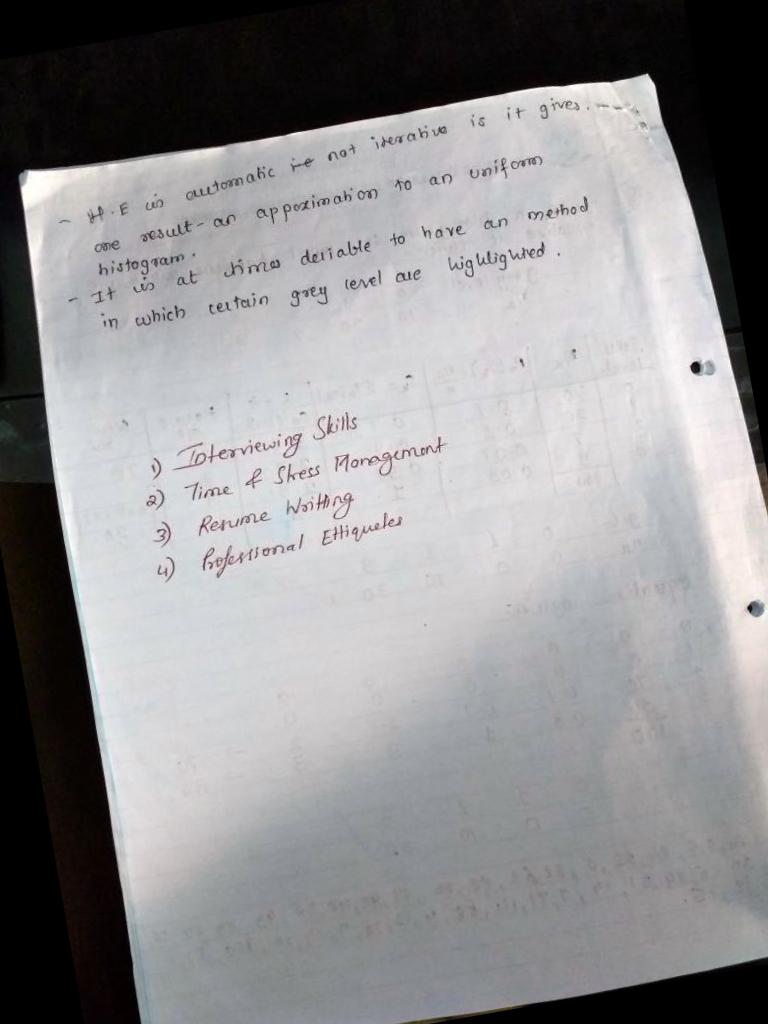 - H.E is automatic ie not iterative is it gives.
one result - an appoximation to an uniform
histogram.
- It is at times deriable to have an method
in which certain grey level are highlighted.
1) Interviewing Skills
2) Time & Stress Management
3) Resume Writting
4) Professional Ettiquetes